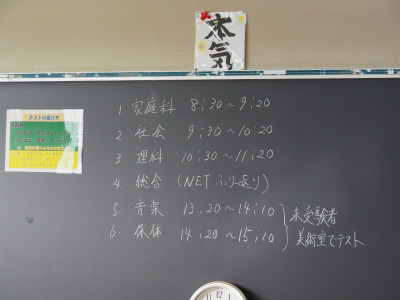 本気
テストの受け方
1. 家庭科 8:30〜9:20
2 社会 9:30〜10:20
3 理科 10:30〜11:20
4. 総合 (NETふり返り)
5. 音楽 13.20〜14:10
6. 保体 14:20〜15:10
未受験者
美術室でテスト